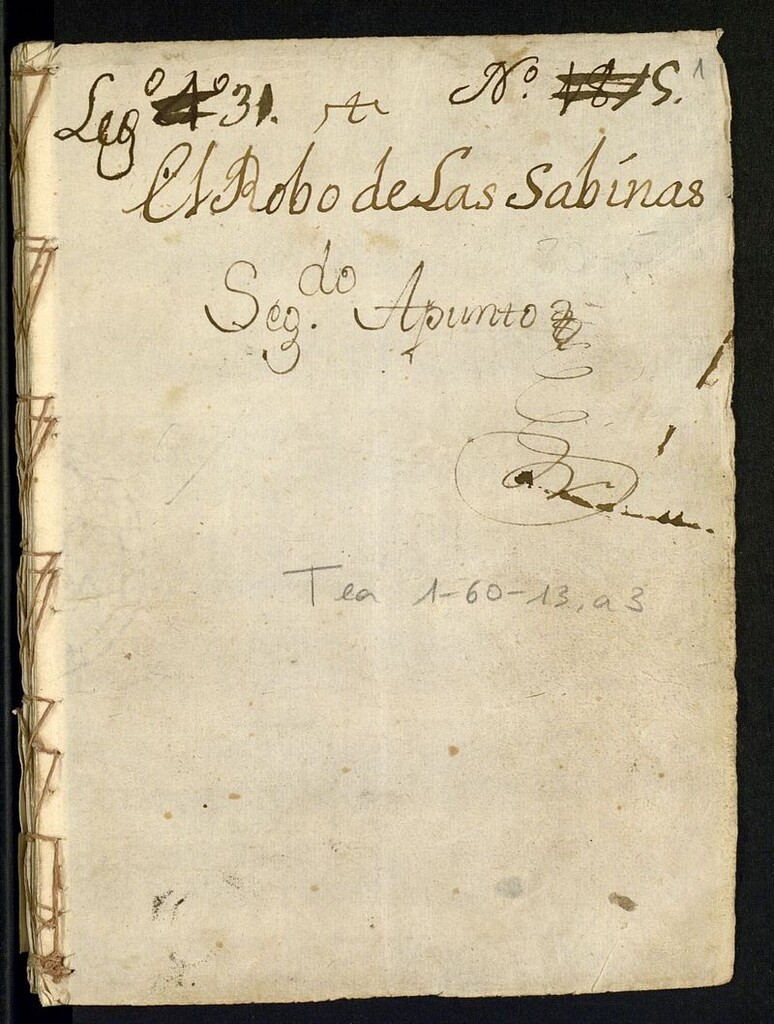 1
Legº 31. Nº 5.
El Robo de Las Sabinas
Seg.do Apunto
Tea 1-60-13, a 3